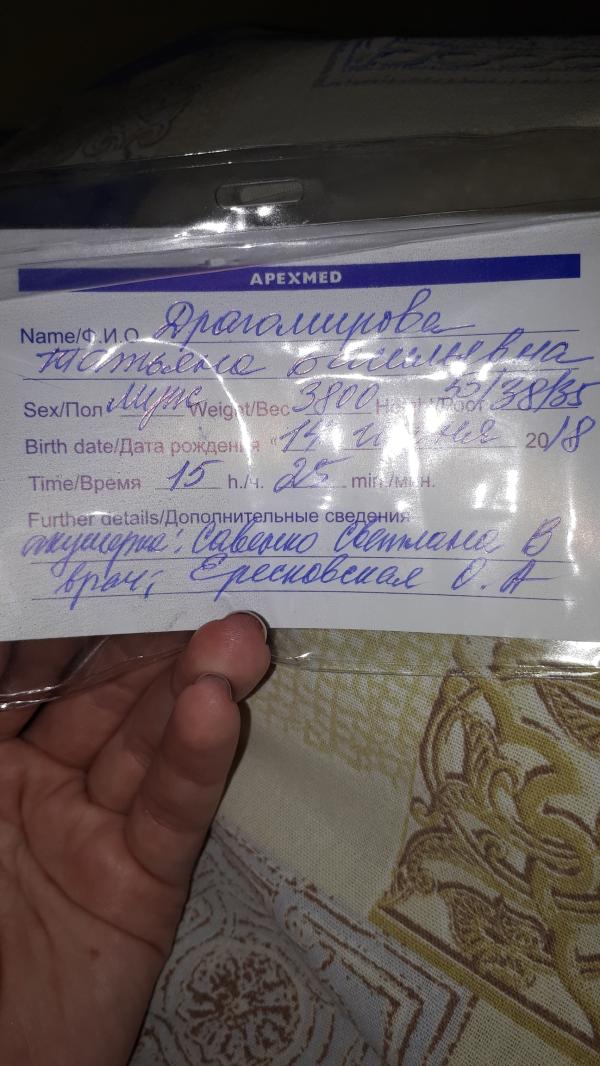 APEXMED
Name/Ф.И.О. Драгомирова
Татьяна Васильевна
Sex/Пол Муж Weight/Вес 3800 53/38/35
Birth date/Дата рождения "14 июня 2018
Time/Время 15 h./ч. 25 min./мин.
Further details/Дополнительные сведения
акушерка: Савенко Светлана В
врач: Ересковская О. А